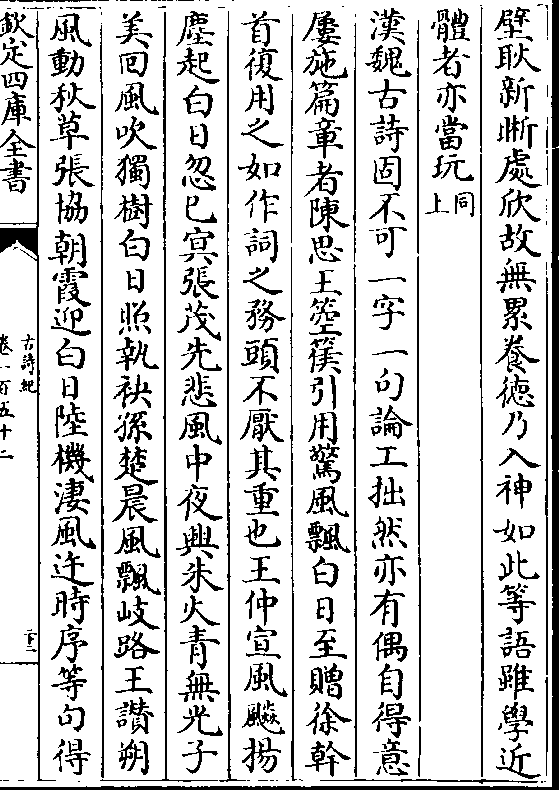 壁耿新晣處欣故無累養德乃入神如此等語雖學近
體者亦當玩同上
漢魏古詩固不可一字一句論工拙然亦有偶自得意
屢施篇章者陳思王箜篌引用驚風飄白日至贈徐幹
首復用之如作詞之務頭不厭其重也王仲宣風飈揚
塵起白日忽已冥張茂先悲風中夜興朱火青無光子
美回風吹獨樹白日照執袂孫楚晨風飄岐路王讃朔
風動秋草張協朝霞迎白日陸機淒風迕時序等句得
欽定四庫全書
古詩紀
卷一百五十二
二十二